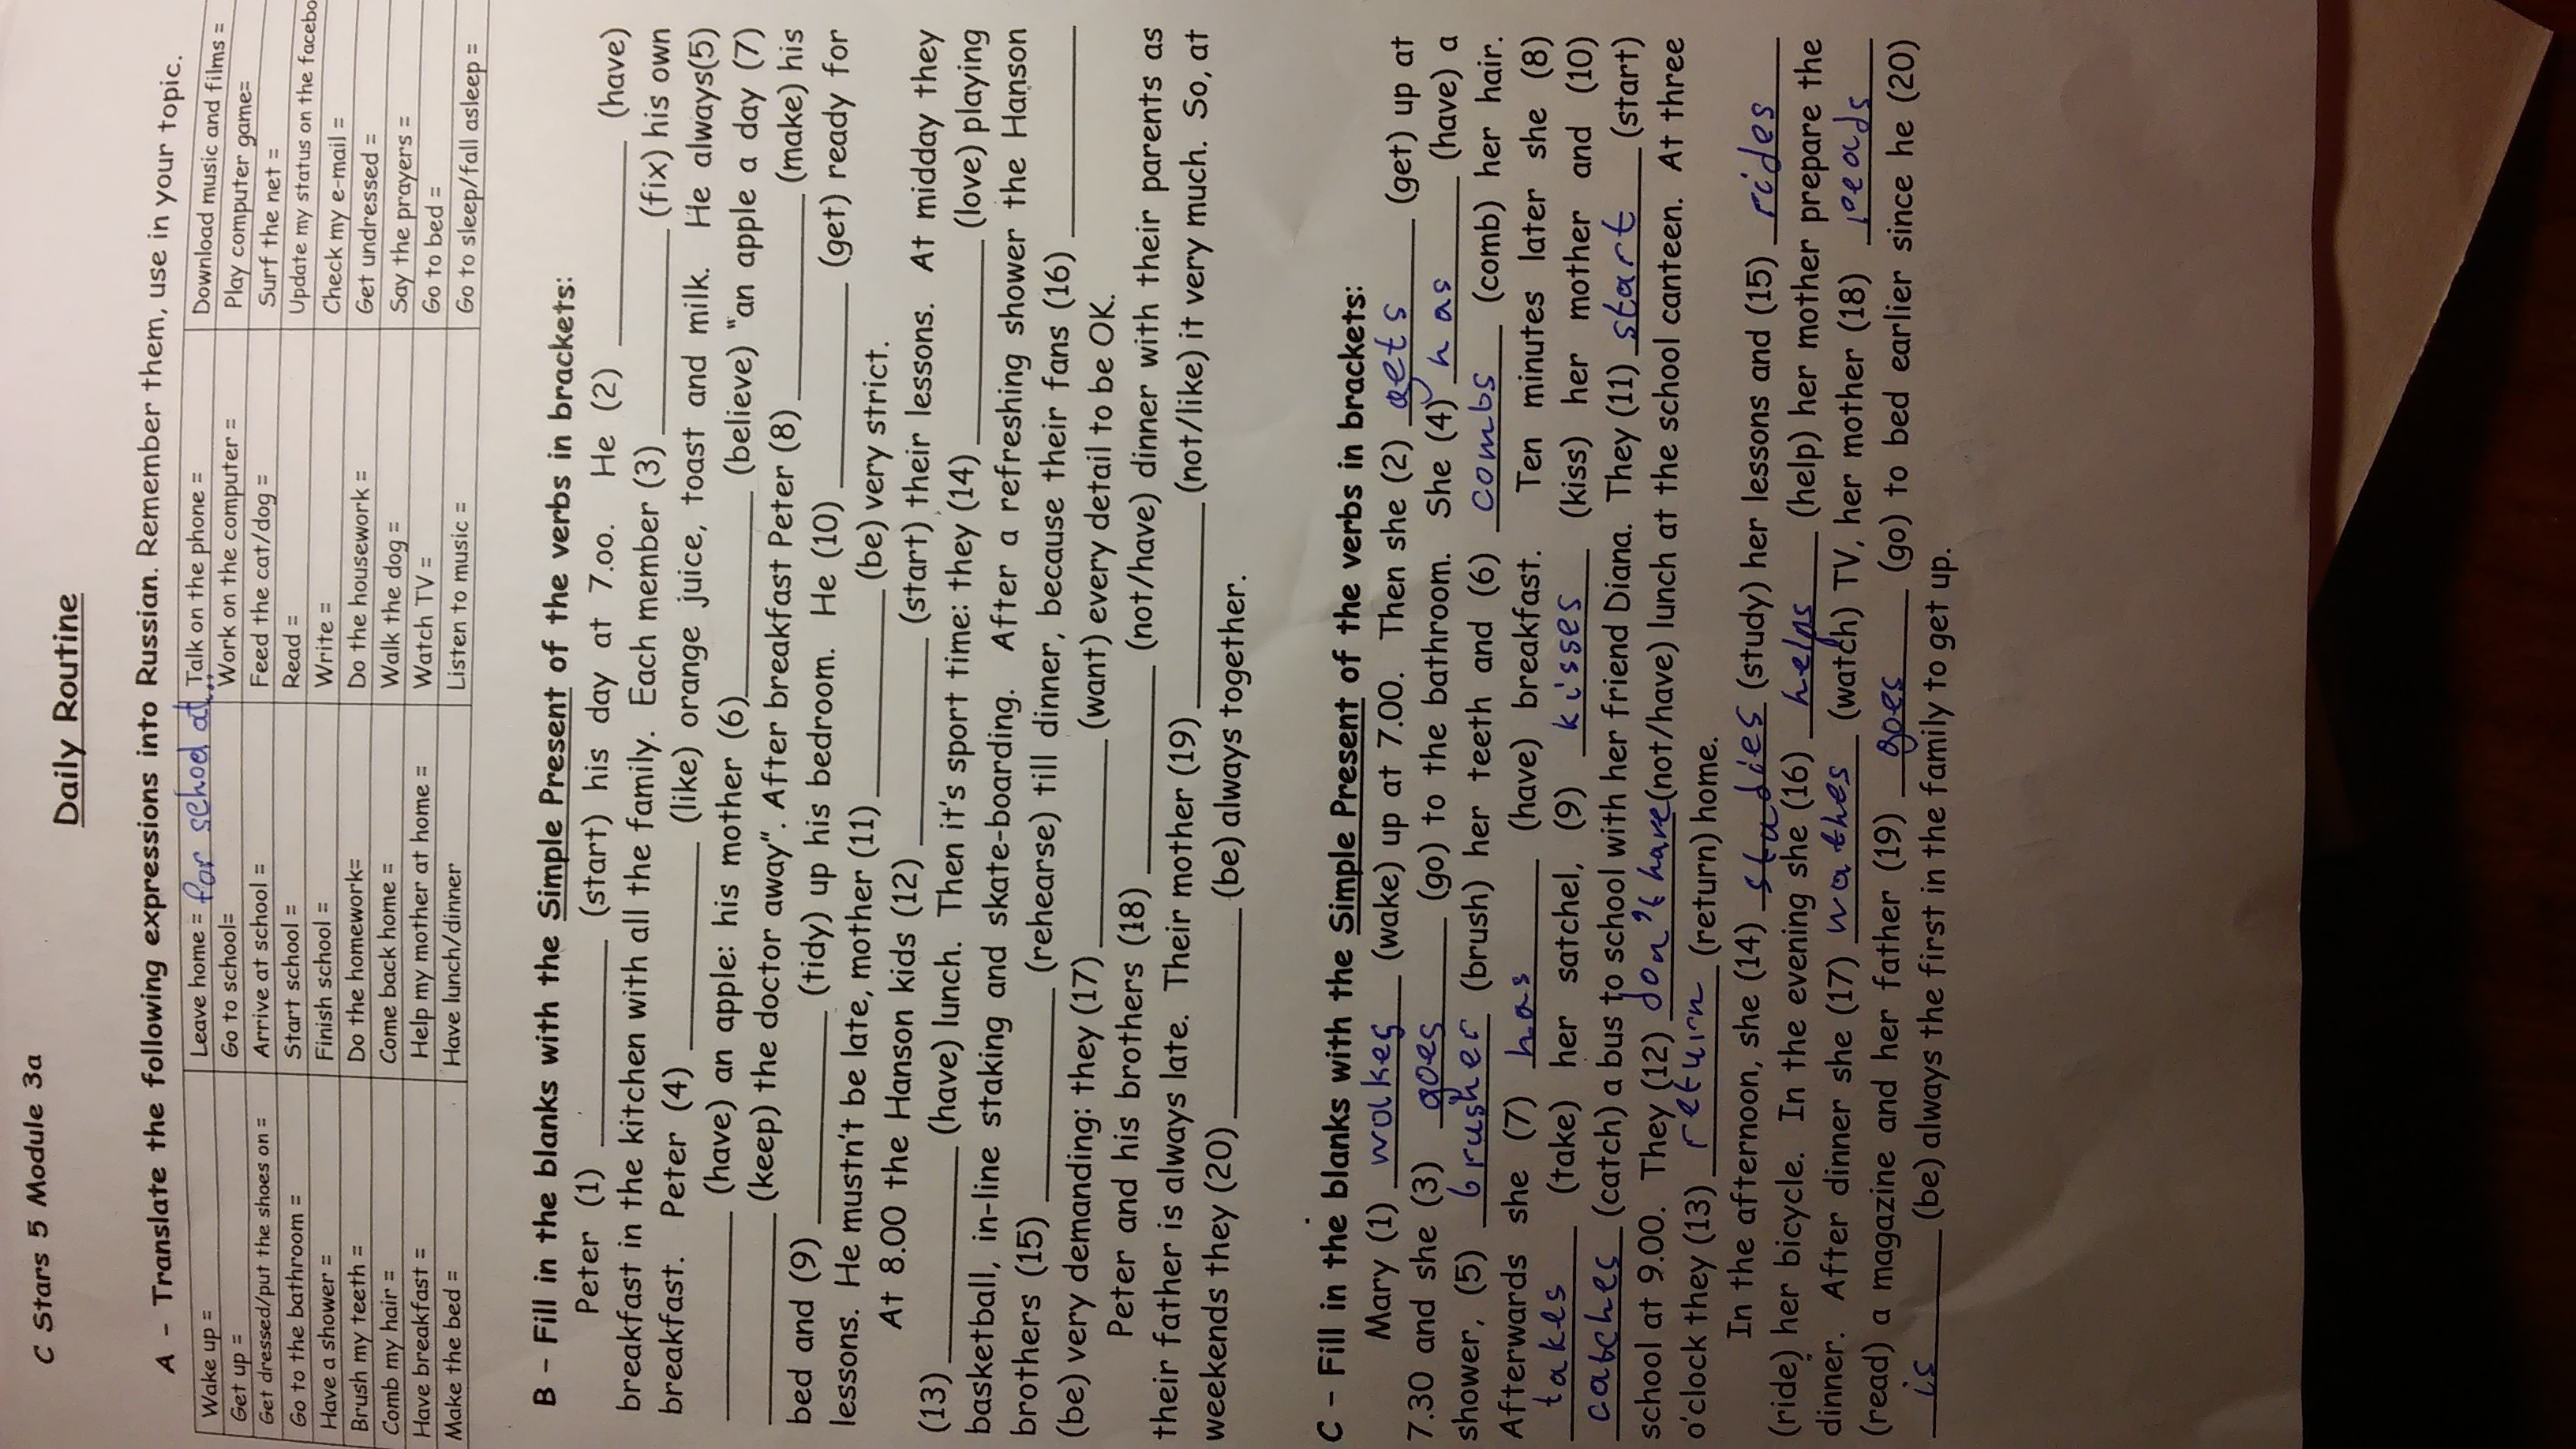 C Stars 5 Module 3a
Daily Routine
A - Translate the following expressions into Russian. Remember them, use in your topic.
Wake up = Leave home = for school at... Talk on the phone = Download music and films =
Get up = Go to school= Work on the computer = Play computer game=
Get dressed/put the shoes on = Arrive at school = Feed the cat/dog = Surf the net =
Go to the bathroom = Start school = Read = Update my status on the facebo
Have a shower = Finish school = Write = Check my e-mail =
Brush my teeth = Do the homework= Do the housework = Get undressed =
Comb my hair = Come back home = Walk the dog = Say the prayers =
Have breakfast = Help my mother at home = Watch TV = Go to bed =
Make the bed = Have lunch/dinner Listen to music = Go to sleep/fall asleep =
B - Fill in the blanks with the Simple Present of the verbs in brackets:
Peter (1) ________ (start) his day at 7.oo. He (2) ________ (have)
breakfast in the kitchen with all the family. Each member (3) ________ (fix) his own
breakfast. Peter (4) ________ (like) orange juice, toast and milk. He always(5)
________ (have) an apple: his mother (6)________ (believe) "an apple a day (7)
________ (keep) the doctor away". After breakfast Peter (8) ________ (make) his
bed and (9) ________ (tidy) up his bedroom. He (10) ________ (get) ready for
lessons. He mustn't be late, mother (11) ________ (be) very strict.
At 8.00 the Hanson kids (12) ________ (start) their lessons. At midday they
(13) ________ (have) lunch. Then it's sport time: they (14) ________ (love) playing
basketball, in-line staking and skate-boarding. After a refreshing shower the Hanson
brothers (15) ________ (rehearse) till dinner, because their fans (16) ________
(be) very demanding: they (17) ________ (want) every detail to be OK.
Peter and his brothers (18) ________ (not/have) dinner with their parents as
their father is always late. Their mother (19) ________ (not/like) it very much. So, at
weekends they (20) ________ (be) always together.
C - Fill in the blanks with the Simple Present of the verbs in brackets:
Mary (1) wakes (wake) up at 7.00. Then she (2) gets (get) up at
7.30 and she (3) goes (go) to the bathroom. She (4) has (have) a
shower, (5) brushes (brush) her teeth and (6) combs (comb) her hair.
Afterwards she (7) has (have) breakfast. Ten minutes later she (8)
takes (take) her satchel, (9) kisses (kiss) her mother and (10)
catches (catch) a bus to school with her friend Diana. They (11) start (start)
school at 9.00. They (12) don't have (not/have) lunch at the school canteen. At three
o'clock they (13) return (return) home.
In the afternoon, she (14) studies (study) her lessons and (15) rides
(ride) her bicycle. In the evening she (16) helps (help) her mother prepare the
dinner. After dinner she (17) wathes (watch) TV, her mother (18) reads
(read) a magazine and her father (19) goes (go) to bed earlier since he (20)
is (be) always the first in the family to get up.